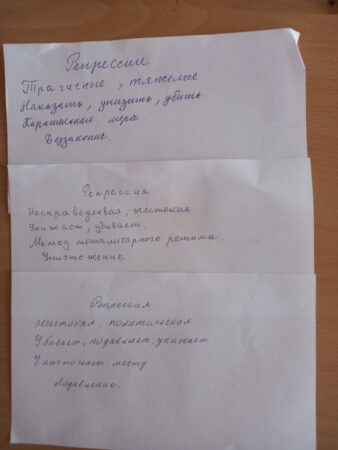 Репрессии
Трагичные, тяжелые
Наказать, унизить, убить
Карательная мера
Беззаконие.
Репрессия
Несправедливая, жестокая
Унижает, убивает.
Метод тоталитарного режима
Уничтожение
Репрессия
Жестокая, политическая
Убивает, подавляет, унижает
Уничтожает мечту
Подавление.